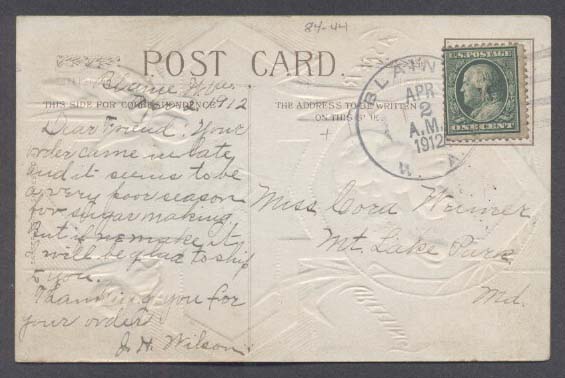 84-44
POST CARD.
THIS SIDE FOR CORRESPONDENCE
THE ADDRESS TO BE WRITTEN
ON THIS SIDE.
1912
Dear Friend. Your
order came in late
and it seems to be
a very poor season
for sugar making
but if we make it
will be glad to ship
to you.
Thanking you for
your order
J. H. Wilson.
Miss Cora
Mt. Lake Park
Md.
APR
2
A.M.
1912
U.S. POSTAGE
ONE CENT